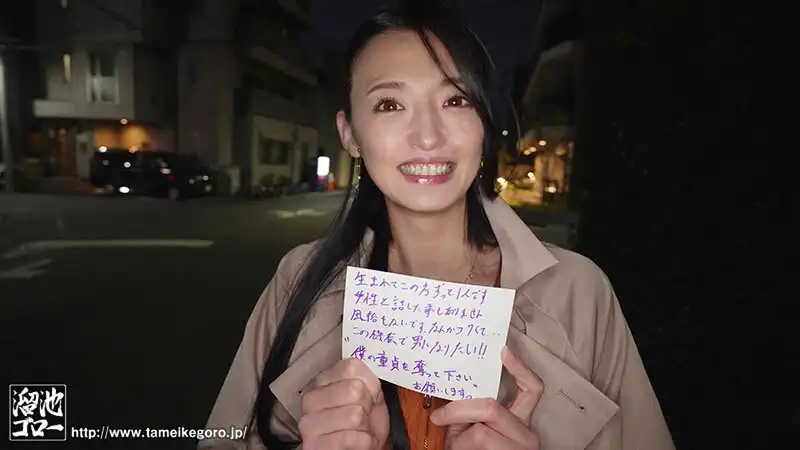 生まれてこの方ずっと1人です
女性と話した事もありません
風俗もないです。なんかコワくて…
この機会で男になりたい!!
"僕の童貞を奪って下さい"
お願いします。
溜池
ゴロー
http://www.tameikegoro.jp/